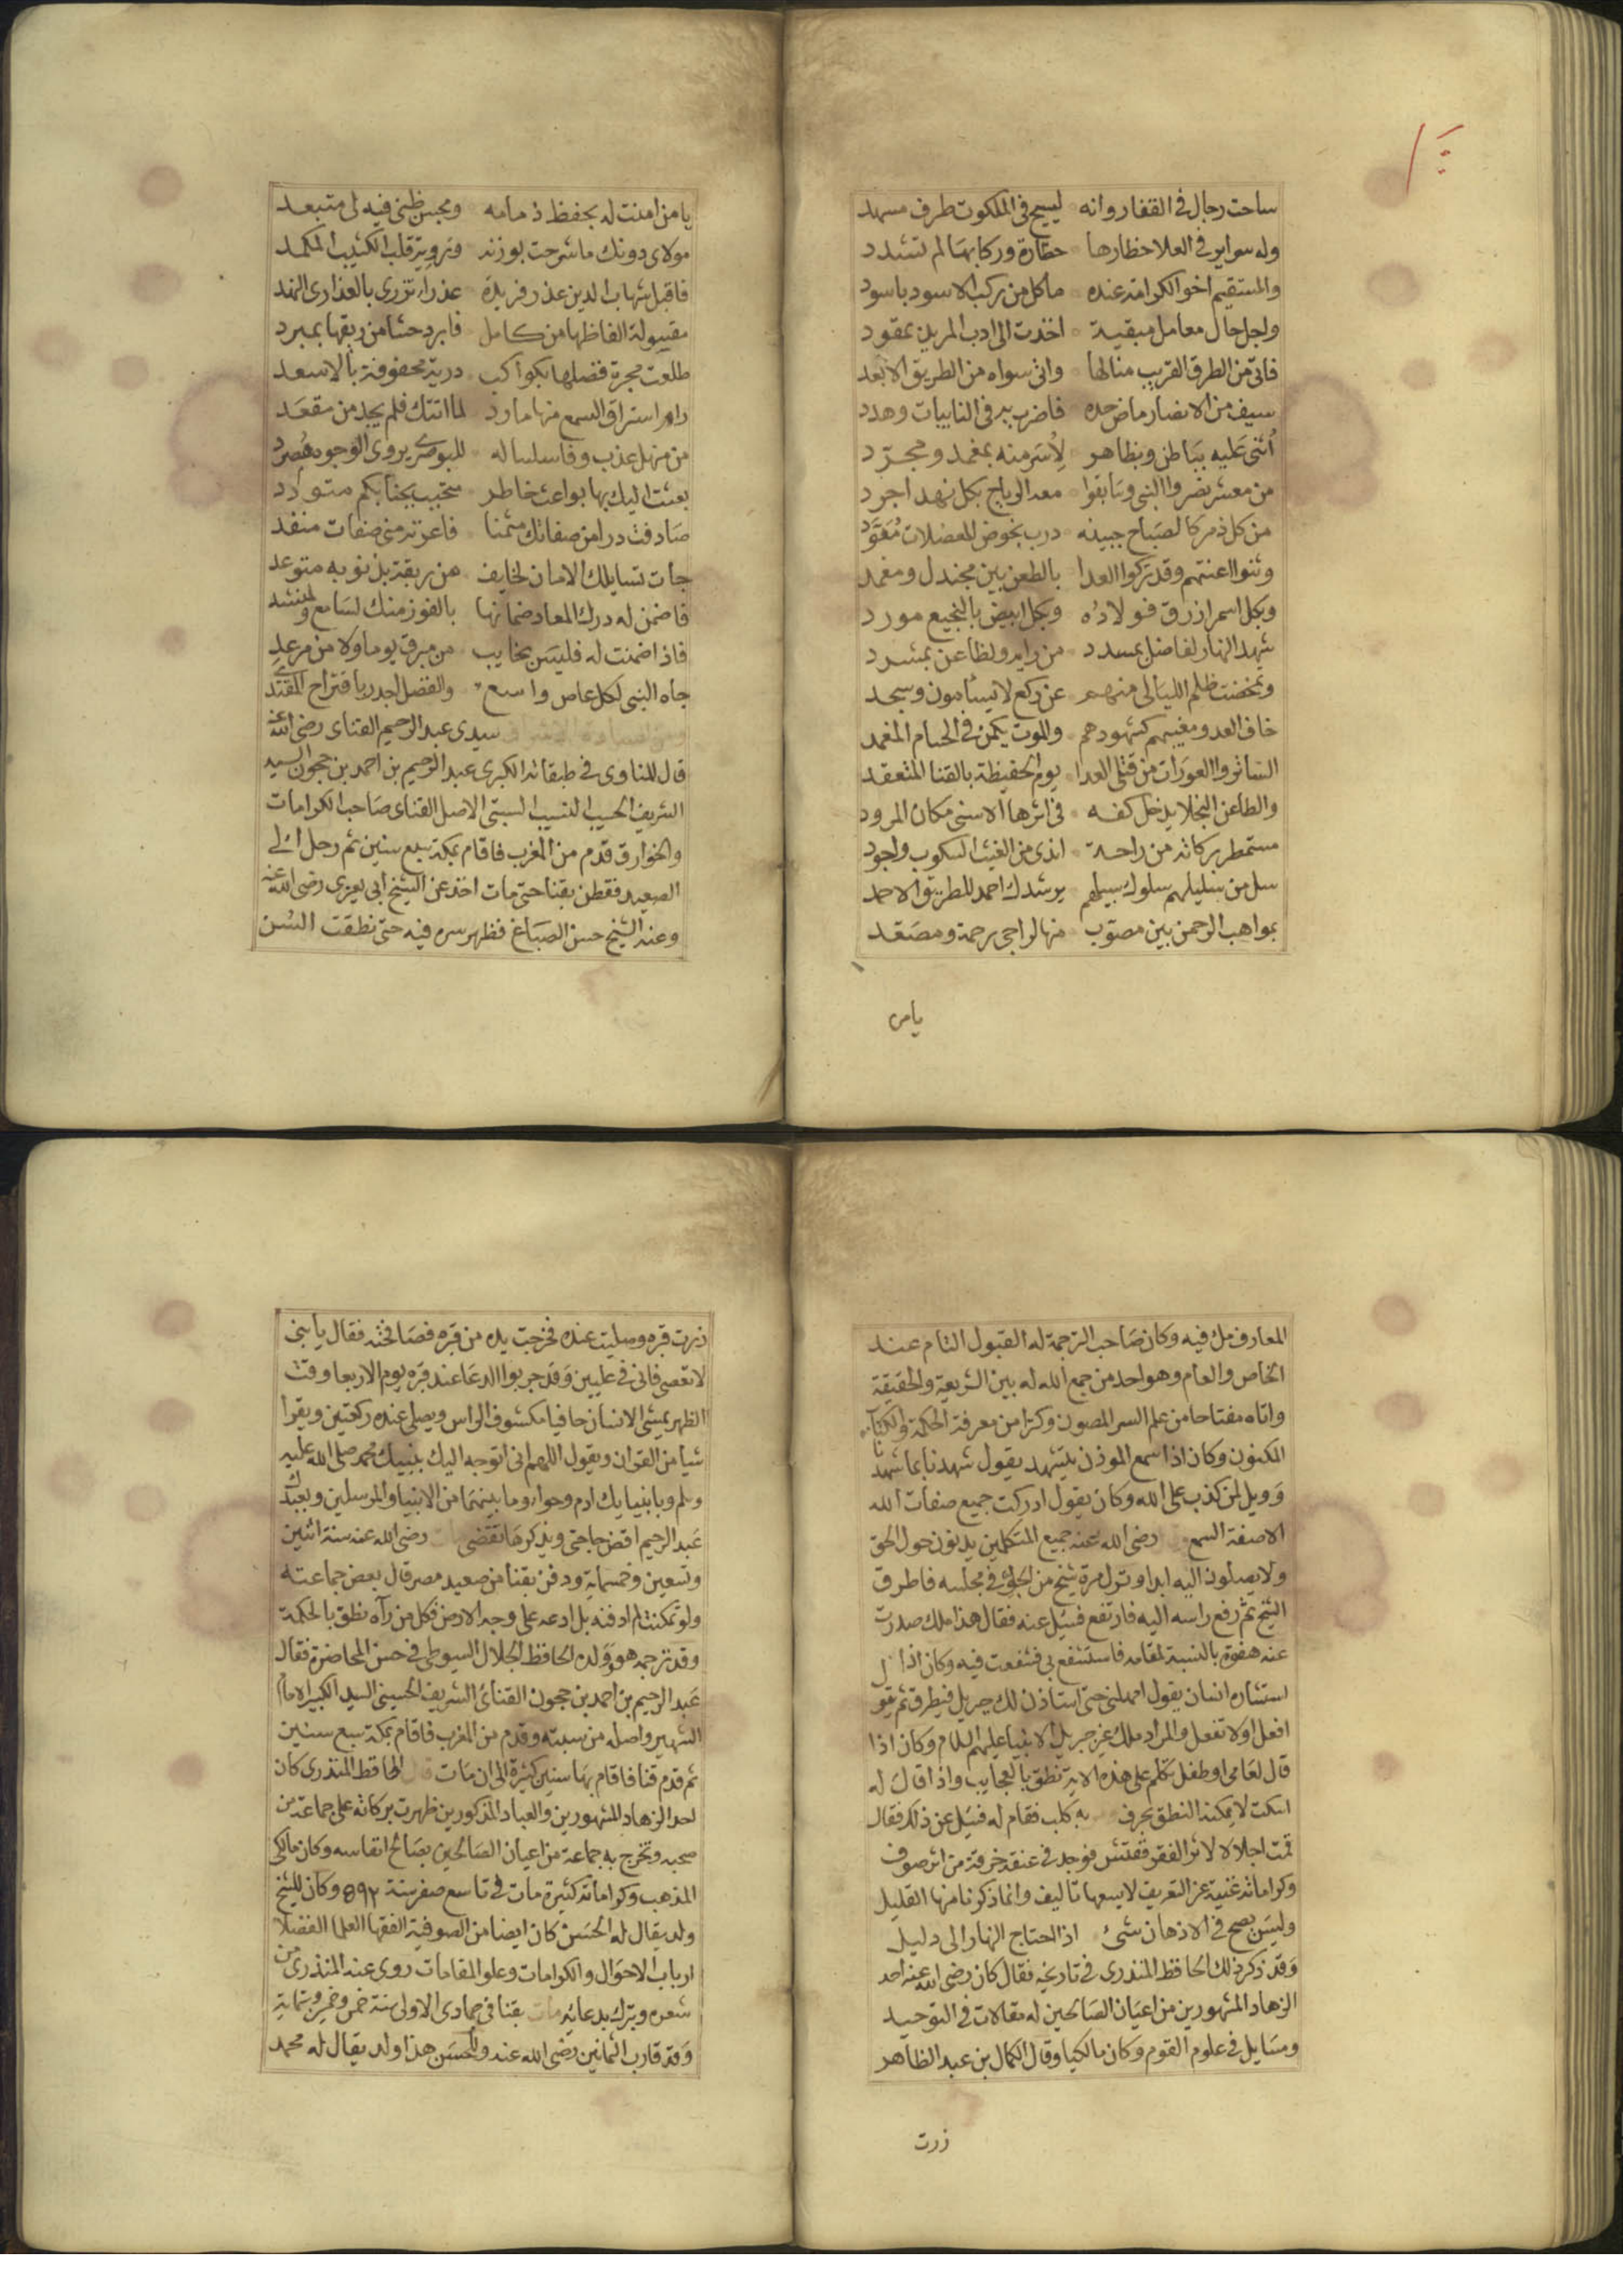 ساحت رجال في القفار وانه ليسيح في الملكوت طرف مسهد
وله سواير في العلا خطارها خطارة وركابها لم تشدد
والمستقيم اخو الكرامة عنده ما كل من ركب الاسود باسود
ولجل حال معامل مبقية اخذت الى ادب المريد بمقود
فاتي من الطرق القريب منالها واتى سواه من الطريق الابعد
سيف من الانصار ماض حده فاضرب به في النايبات وهدد
اثني عليه بباطن وبظاهر لاسر منه بمغمد ومجرد
من معشر نصروا النبي وسابقوا معه الرياح بكل نهد اجرد
من كل ذمر كالصباح جبينه درب بخوض المعضلات معود
وثنوا اعنتهم وقد تركوا العدا بالطعن بين مجندل ومغمد
وبكل اسمر ازرق فولاذه وبكل ابيض بالنجيع مورد
شهد النهار لفاضل بمسدد من رايه ولطاعن بمسدد
وتمخضت ظلم الليالي منهم عن ركع لا يسأمون وسجد
خاف العدو مغيبهم كشهودهم والموت يكمن في الحسام المغمد
الساتروا العورات من قتلى العدا يوم الحفيظة بالقنا المتقصد
والطاعن النجلا يدخل كفه في اثرها الاسنى مكان المرود
مستمطر بركاته من راحة اندى من الغيث السكوب واجود
سل من سليلهم سلوك سبيلهم يرشدك احمد للطريق الاحمد
بمواهب الرحمن بين مصوب منها لراجي رحمة ومصعد
يامن
يامن امنت له بحفظ ذمامه وبحسن ظني فيه لى متبعد
مولاى دونك ما شرحت بوزنه ورويه قلب الكئيب المكمد
فاقبل شهاب الدين عذر فريدة عذراء تزرى بالعذارى النهد
مقبولة الفاظها من كامل فابرد حشا من ريقها بمبرد
طلعت مجرة فضلها بكواكب درية محفوفة بالاسعد
رام استراق السمع منها مارد لما اتتك فلم يجد من مقعد
من منهل عذب وفا سلساله للبوصيرى يروى الوجود مصرد
بعثت اليك بها بواعث خاطر متحبب بجنابكم متودد
صادفت درا من صفاتك مثمنا فاعرته منى صفات منضد
جات تسايلك الامان لخايف من ربقة بذنوبه متوعد
فاضمن له درك المعاد ضمانها بالفوز منك لسامع ولمنشد
فاذا ضمنت له فليس بخايب من مبرق يوما ولا من مرعد
جاه النبى لكل عاص واسع والفضل اجدر باقتراح المقتدي
ومن السادة الاشراف سيدى عبد الرحيم القناى رضى الله عنه
قال المناوى في طبقاته الكبرى عبد الرحيم بن احمد بن حجون السيد
الشريف الحسيب النسيب السبتى الاصل القناى صاحب الكرامات
والخوارق قدم من المغرب فاقام بمكة سبع سنين ثم رحل الى
الصعيد فقطن بقنا حتى مات اخذ عن الشيخ ابي يعزى رضى الله عنه
وعنه الشيخ حسن الصباغ فظهر سره فيه حتى نطقت السن
المعارف من فيه وكان صاحب الترجمة له القبول التام عند
الخاص والعام وهو احد من جمع الله له بين الشريعة والحقيقة
واتاه مفتاحا من علم السر المصون وكنزا من معرفة الحكمة والكتاب
المكنون وكان اذا سمع الموذن يتشهد يقول شهدنا بما شهدنا
وويل لمن كذب على الله وكان يقول ادركت جميع صفات الله
الا صفة السمع رضى الله عنه جميع المتكلمين يدندنون حول الحق
ولا يصلون اليه ابدا ونزل مرة شبح من الجو في مجلسه فاطرق
الشيخ ثم رفع راسه اليه فارتفع فسيل عنه فقال هذا ملك صدرت
عنه هفوة بالنسبة لمقامه فاستشفع بي فشفعت فيه وكان اذا
استشاره انسان يقول امهلنى حتى استاذن لك جبريل فيطرق ثم يقول
افعل اولا تفعل والمراد ملك غير جبريل الانبيا عليهم السلام وكان اذا
قال لعامى او طفل تكلم على هذه الاية نطق بالعجايب واذا قال له
اسكت لا يمكنه النطق بحرف به كلب فقام له فسيل عن ذلك فقال
قمت اجلالا لاثر الفقر ففتش فوجد في عنقه خرقة من اثر صوف
وكراماته غنية عن التعريف لا يسعها تاليف وانما ذكرنا منها القليل
وليس يصح في الاذهان شئ اذا احتاج النهار الى دليل
وقد ذكر ذلك الحافظ المنذرى في تاريخه فقال كان رضى الله عنه احد
الزهاد المشهورين من اعيان الصالحين له مقالات في التوحيد
ومسايل في علوم القوم وكان مالكيا وقال الكمال بن عبد الظاهر
زرت
زرت قبره وصليت عنده فخرجت يده من قبره فصافحته فقال يا بنى
لا تعصى فانى في عليين وقد جربوا الدعا عند قبره يوم الاربعا وقت
الظهر يمشى الانسان حافيا مكشوف الراس ويصلى عنده ركعتين ويقرا
شيا من القران ويقول اللهم انى اتوجه اليك بنبيك محمد صلى الله عليه
وسلم وبابنيايك ادم وحواء وما بينهما من الانبيا والمرسلين وبعبدك
عبد الرحيم اقض حاجتى ويذكرها تقضى مات رضى الله عنه سنة اثنين
وتسعين وخمسماية ودفن بقنا من صعيد مصر قال بعض جماعته
ولو تمكنت لم ادفنه بل ادعه على وجه الارض فكل من رآه نطق بالحكمة
وقد ترجمه هو وولده الحافظ الجلال السيوطى في حسن المحاضرة فقال
عبد الرحيم بن احمد بن حجون القنائ الشريف الحسينى السيد الكبير الامام
الشهير واصله من سبته وقدم من المغرب فاقام بمكة سبع سنين
ثم قدم قنا فاقام بها سنين كثيرة الى ان مات قال الحافظ المنذرى كان
احد الزهاد المشهورين والعباد المذكورين ظهرت بركاته على جماعة من
صحبه وتخرج به جماعة من اعيان الصالحين بصالح انفاسه وكان مالكى
المذهب وكراماته كثيرة مات في تاسع صفر سنة ٥٩٢ وكان للشيخ
ولد يقال له الحسن كان ايضا من الصوفية الفقها العلما الفضلا
ارباب الاحوال والكرامات وعلو المقامات روى عنه المنذرى من
شعره وبترك بدعائه مات بقنا في جمادى الاولى سنة خمس وخمسين وستماية
وقد قارب الثمانين رضى الله عنه وللحسن هذا ولد يقال له محمد